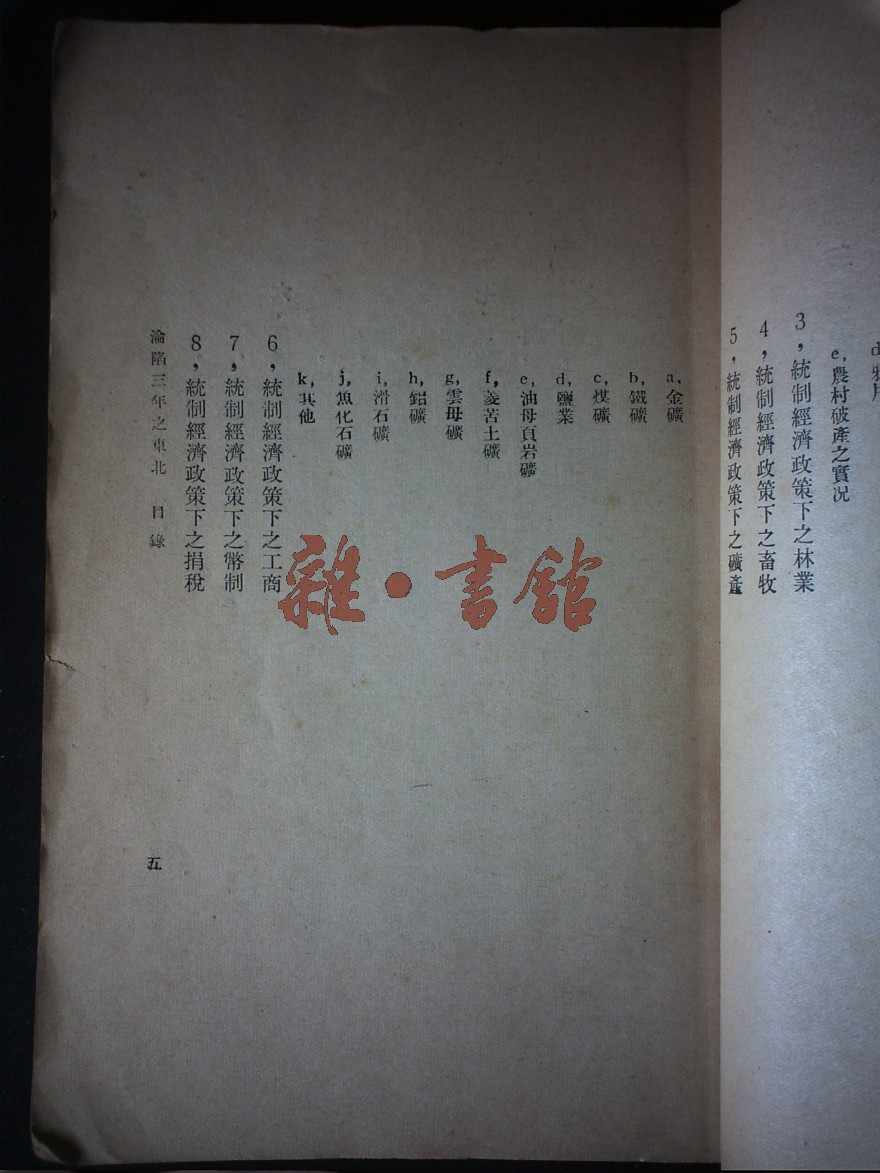 e,農村破產之實況
3,統制經濟政策下之林業
4,統制經濟政策下之畜牧
5,統制經濟政策下之礦產
a,金礦
b,鐵礦
c,煤礦
d,鹽業
e,油母頁岩礦
f,菱苦土礦
g,雲母礦
h,鋁礦
i,滑石礦
j,魚化石礦
k,其他
6,統制經濟政策下之工商
7,統制經濟政策下之幣制
8,統制經濟政策下之捐稅
淪陷三年之東北 目錄
五
雜·書館